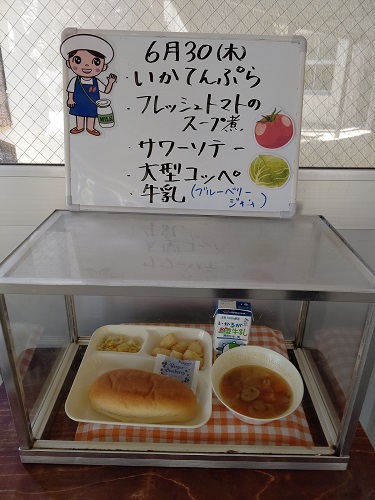 6月30(木)
・いかてんぷら
・フレッシュトマトの
スープ煮
・サワーソテー
・大型コッペ
・牛乳(ブルーベリー
ジャム)
MILK
牛乳